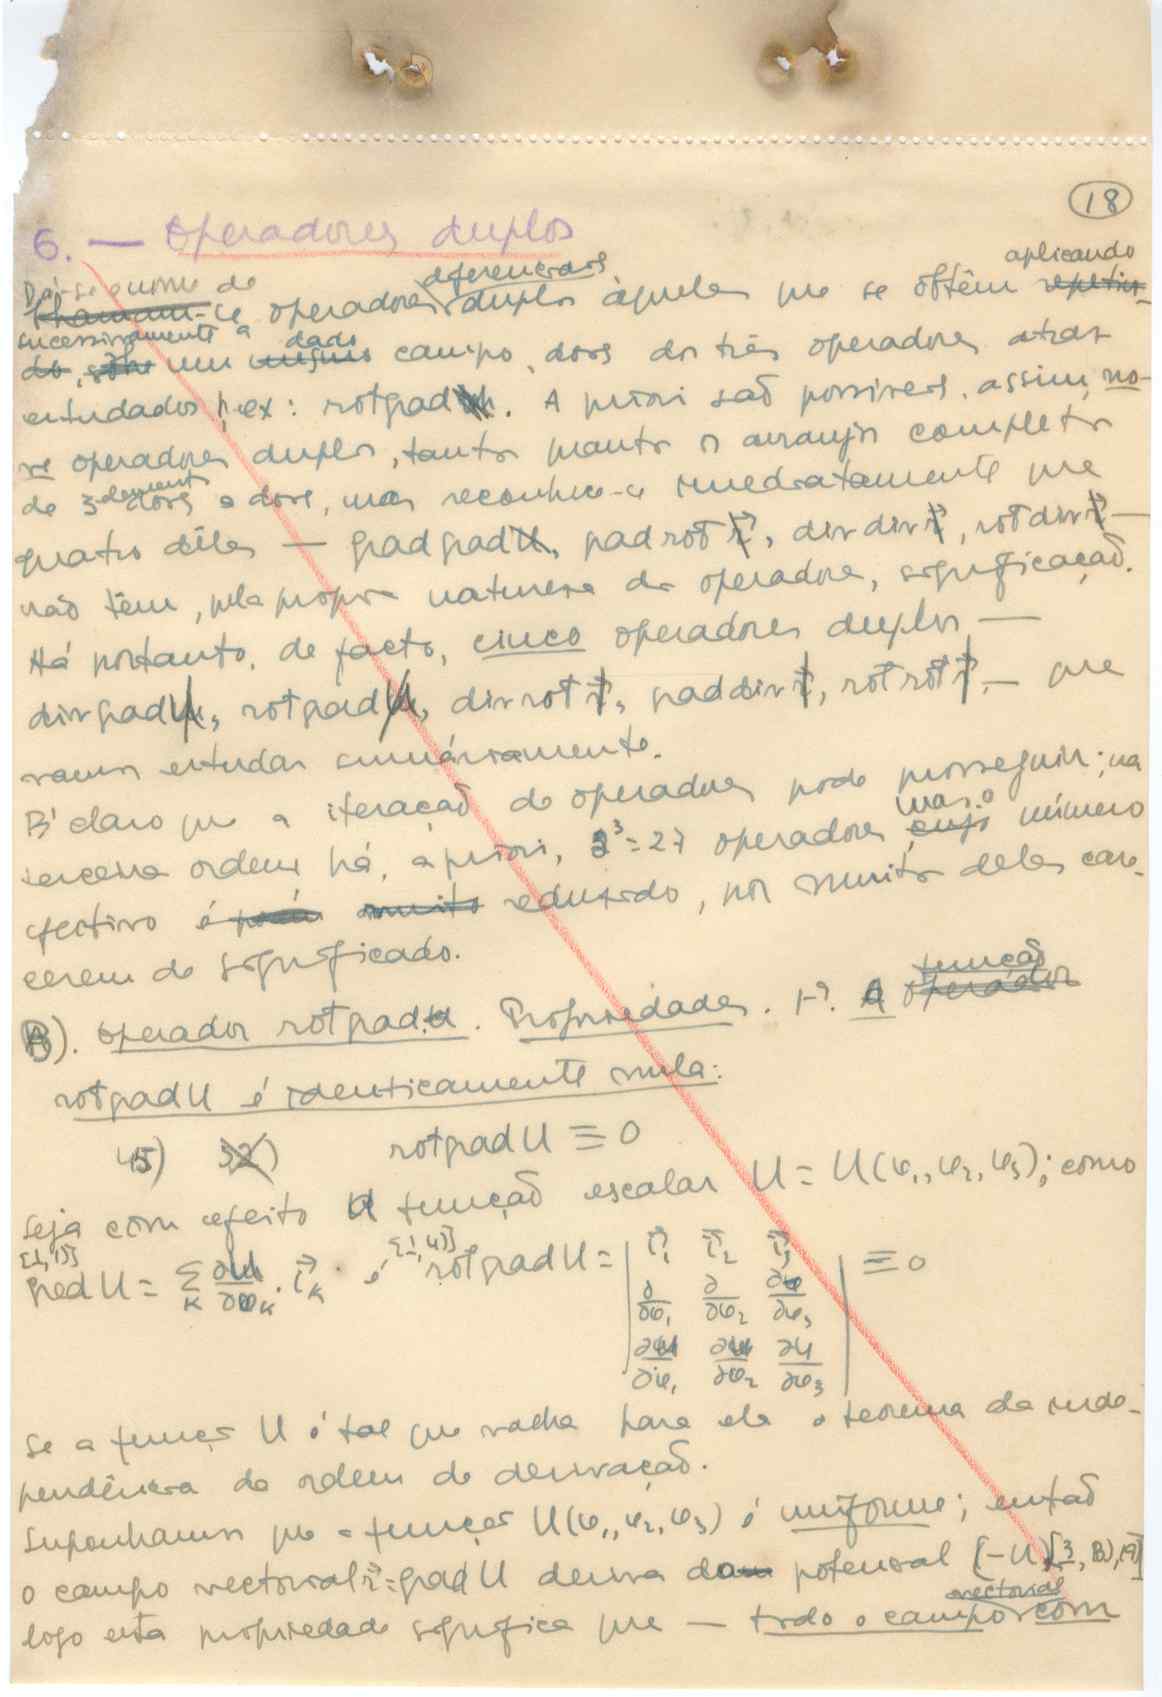 18
6. — Operadores duplos
Dá-se o nome de operadores diferenciais duplos àqueles que se obtêm aplicando
sucessivamente a um dado campo, dois dos três operadores atrás
estudados, p. ex: rotgrad. A priori são possiveis, assim, no-
ve operadores duplos, tantos quantos os arranjos completos
de 3 elementos dois a dois, mas reconhece-se imediatamente que
quatro dêles — gradgrad, gradrot, divdiv, rotdiv —
não têm, pela propria natureza dos operadores, significação.
Há portanto, de facto, cinco operadores duplos —
divgrad, rotgrad, divrot, graddiv, rotrot, — que
vamos estudar sumáriamente.
É claro que a iteração de operadores pode prosseguir; na
terceira ordem há, a priori, 3³=27 operadores, mas o número
efectivo é reduzido, por muitos deles care-
cerem de significado.
A). Operador rotgrad. Propriedades. 1ª. A função
rotgradU é identicamente nula:
45) rotgradU ≡ 0
Seja com efeito a função escalar U = U(φ₁, φ₂, φ₃); como
[1, 1)] [1, 4)]
gradU = Σ_K ∂U/∂φ_K . i⃗_K é rotgradU = | i⃗₁ i⃗₂ i⃗₃ | ≡ 0
∂/∂φ₁ ∂/∂φ₂ ∂/∂φ₃
∂U/∂φ₁ ∂U/∂φ₂ ∂U/∂φ₃
se a função U é tal que valha para ela o teorema da inde-
pendência da ordem de derivação.
Suponhamos que a função U(φ₁, φ₂, φ₃) é uniforme; então
o campo vectorial r⃗=gradU deriva do potencial (-U) [3, B), 19]
logo esta propriedade significa que — todo o campo vectorial com